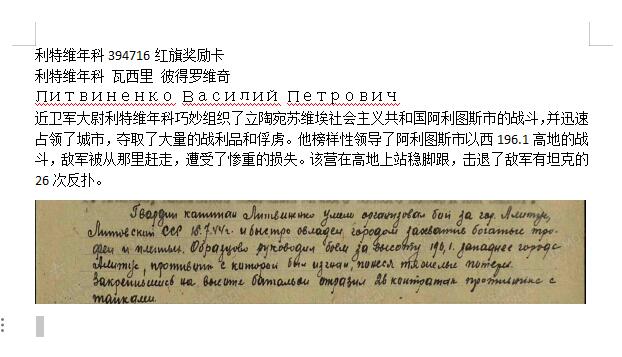 利特维年科 394716 红旗奖励卡
利特维年科 瓦西里 彼得罗维奇
Литвиненко Василий Петрович
近卫军大尉利特维年科巧妙组织了立陶宛苏维埃社会主义共和国阿利图斯市的战斗,并迅速
占领了城市,夺取了大量的战利品和俘虏。他榜样性领导了阿利图斯市以西 196.1 高地的战
斗,敌军被从那里赶走,遭受了惨重的损失。该营在高地上站稳脚跟,击退了敌军有坦克的
26 次反扑。
Гвардии капитан Литвиненко умело организовал бой за гор. Алитус,
Литовской ССР 15.7.44г. и быстро овладел городом захватив богатые тро-
феи и пленных. Образцово руководил боем за высоту 196,1. западнее города
Алитус, противник с которой был изгнан, понеся тяжелые потери.
Закрепившись на высоте батальон отразил 26 контратак противника с
танками.